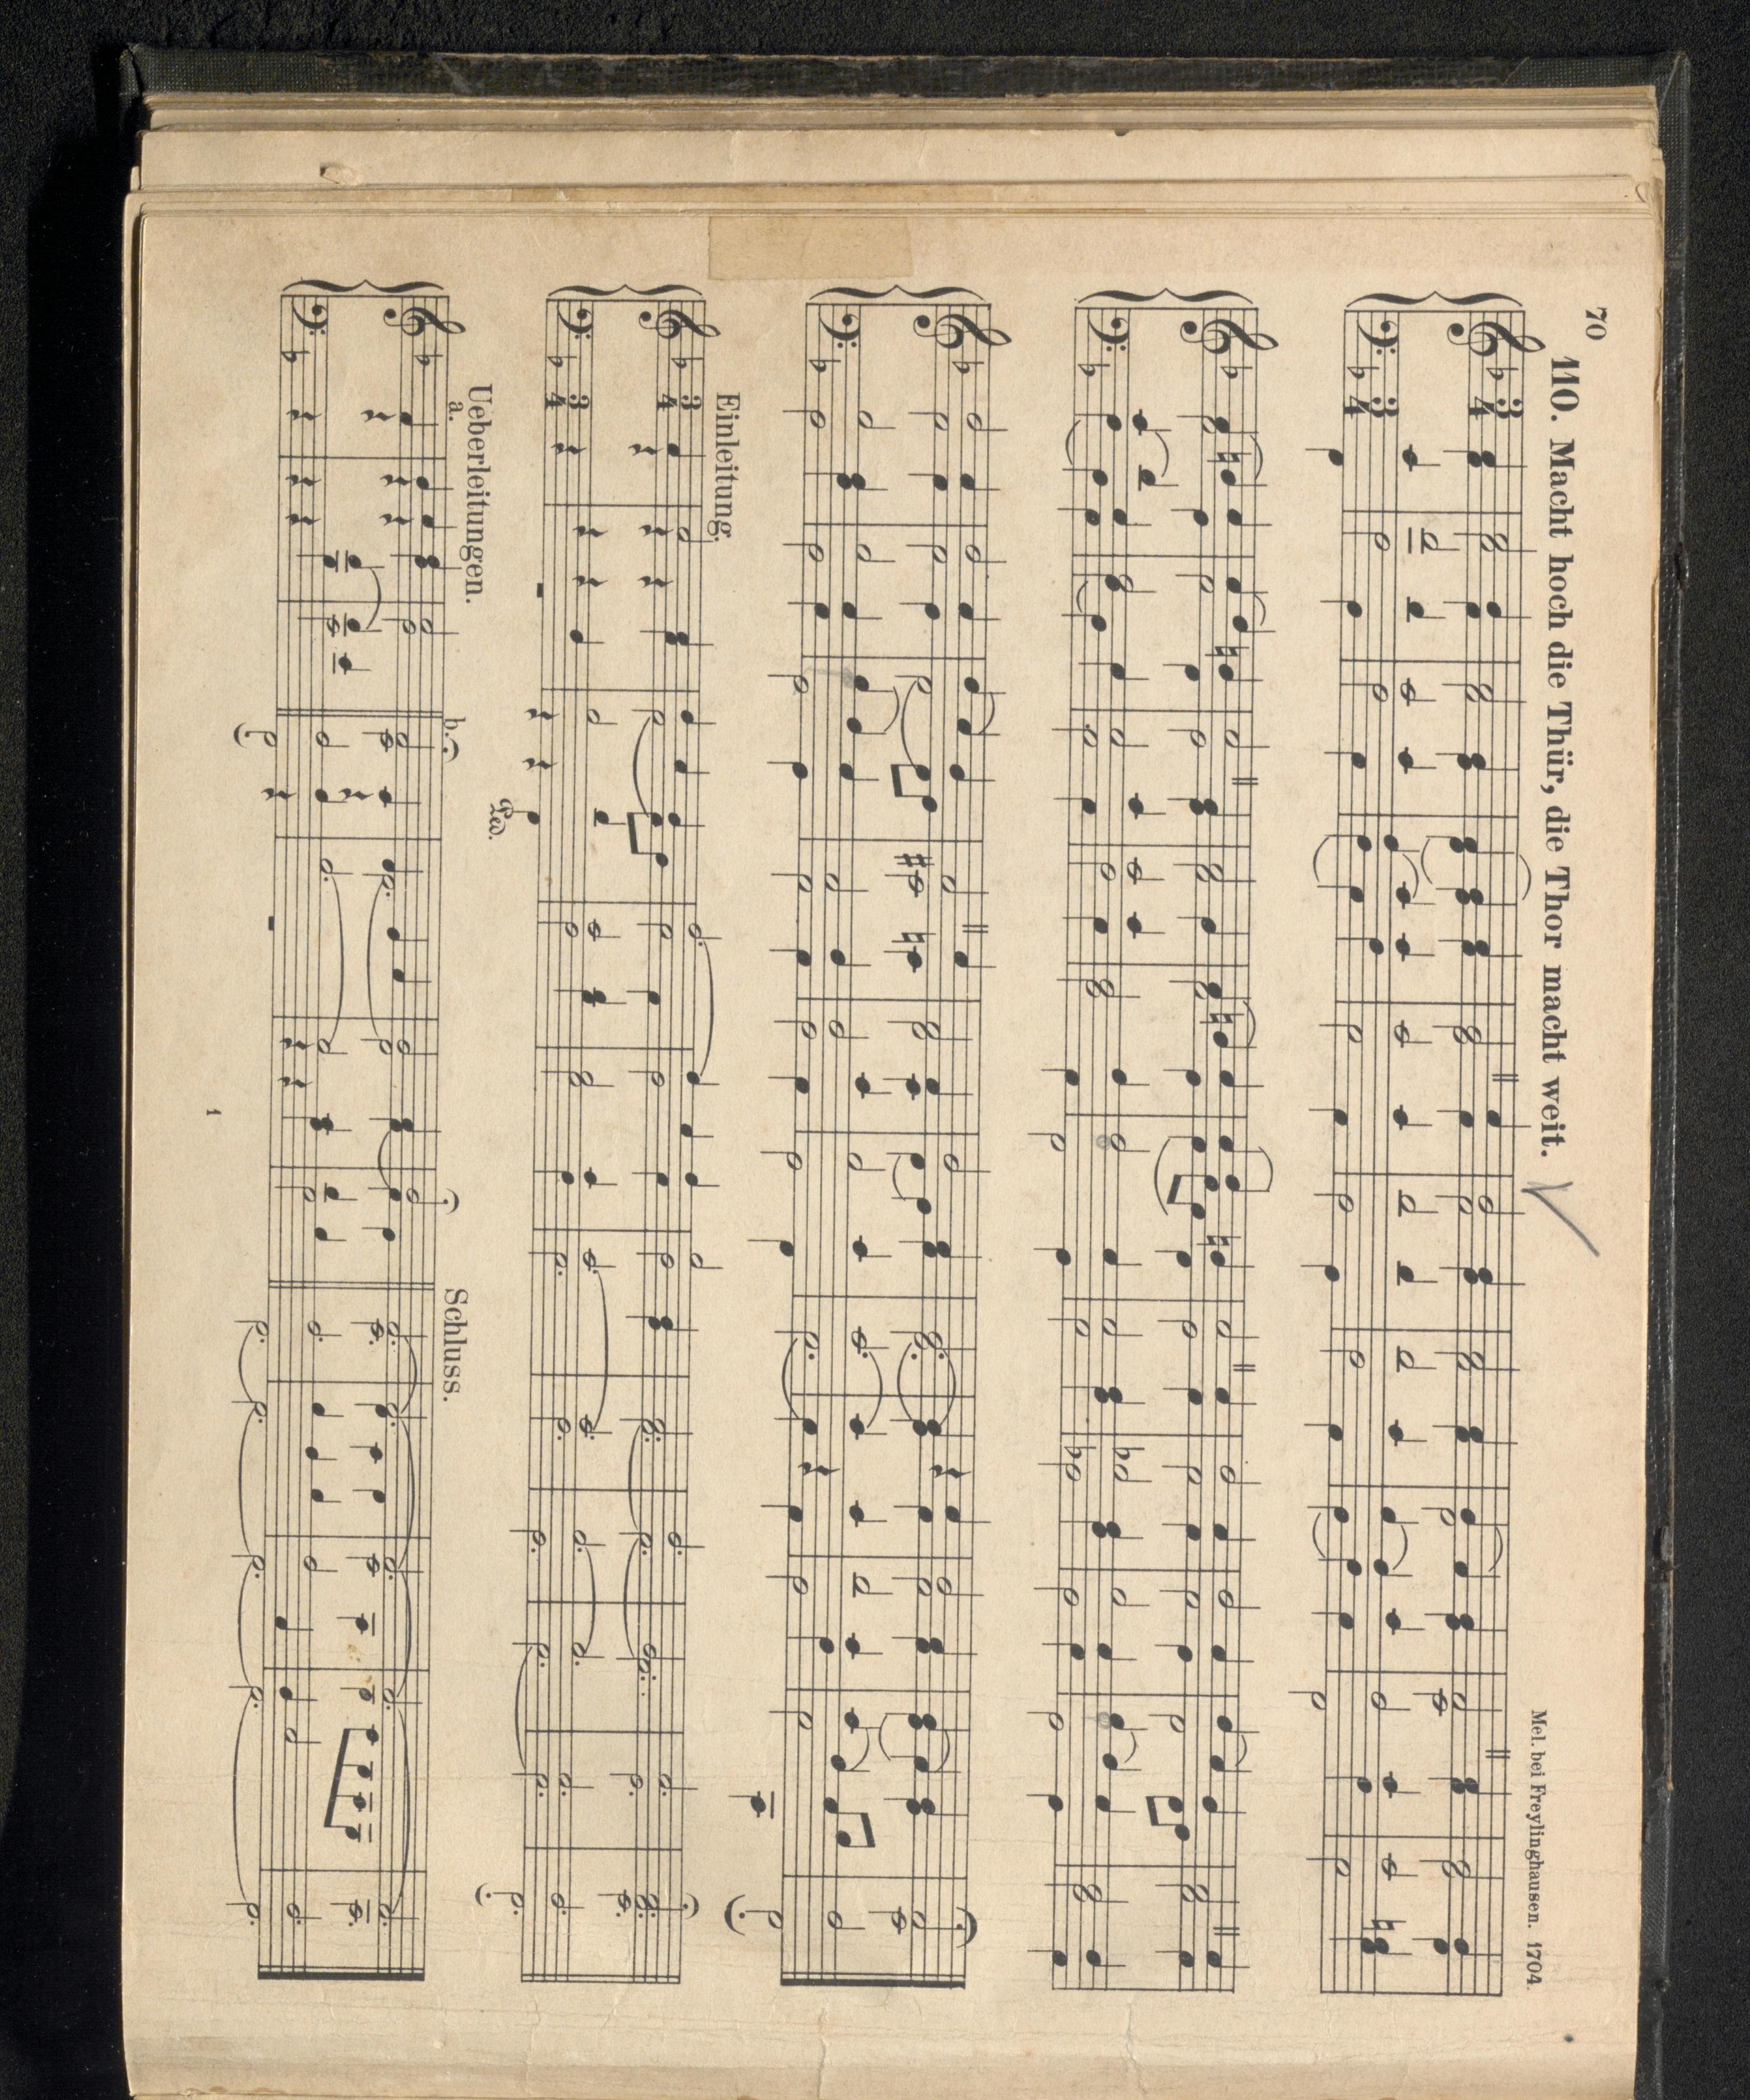 70
110. Macht hoch die Thür, die Thor macht weit.
Mel. bei Freylinghausen. 1704.
Einleitung.
Ped.
Ueberleitungen.
a.
b.
Schluss.
1